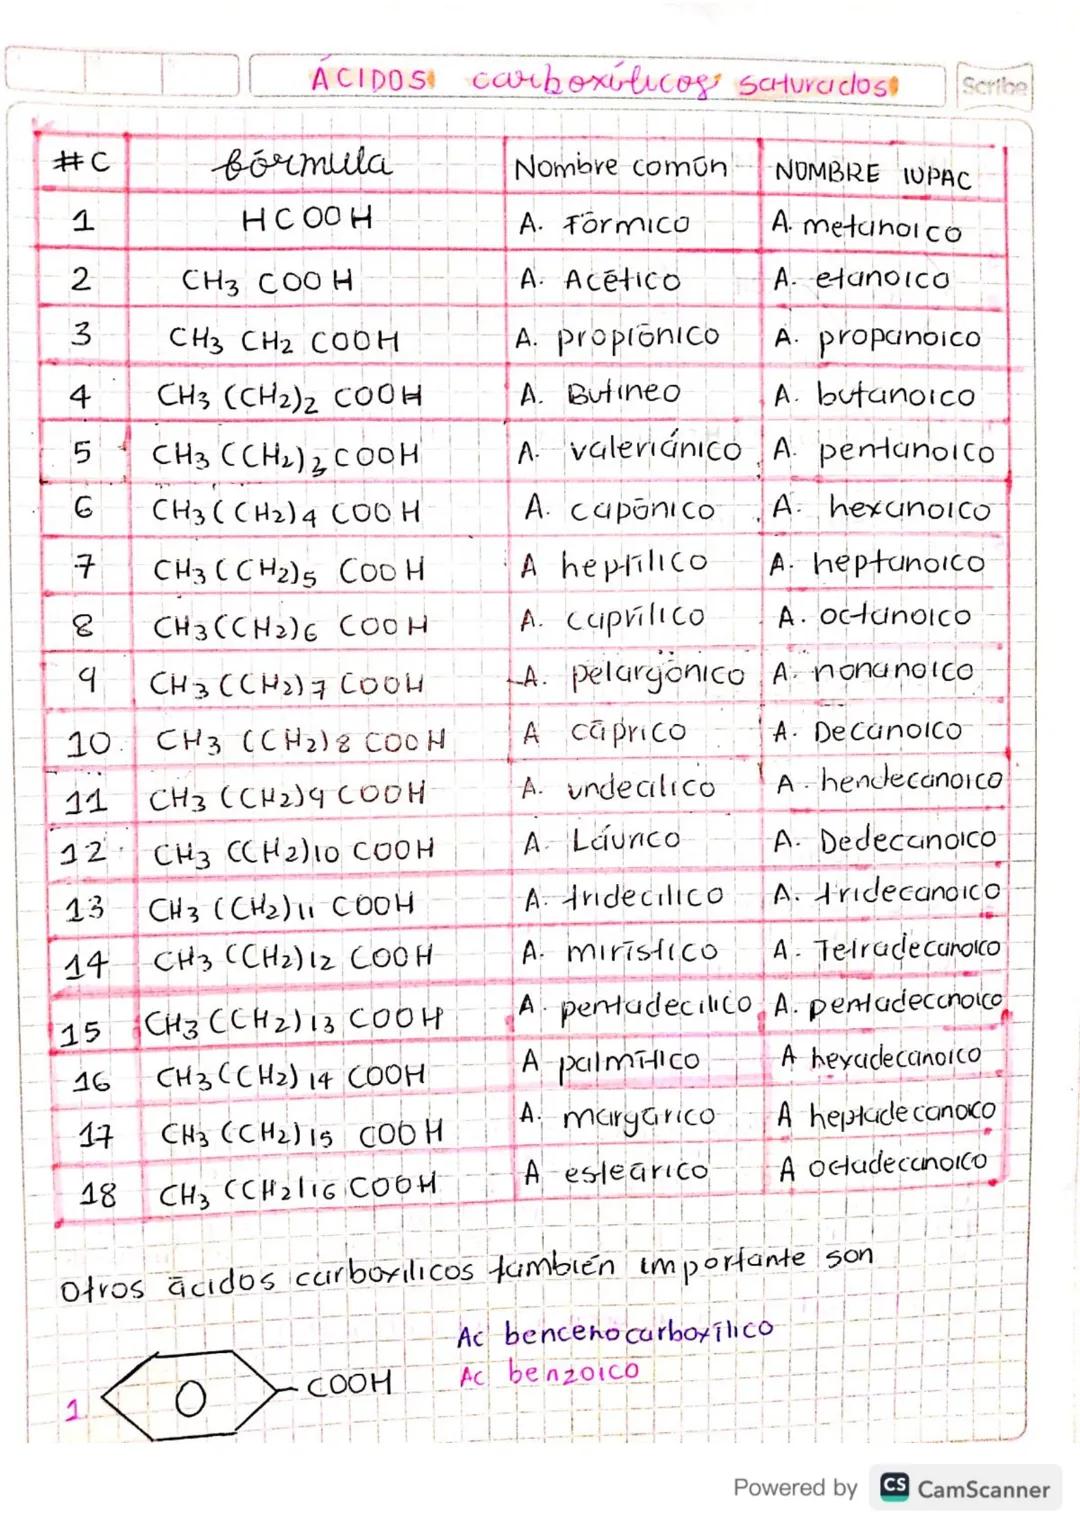 ÁCIDOS carboxílicos saturados
Scribe
#C fórmula Nombre común NOMBRE IUPAC
1 HCOOH A. Fórmico A. metanoico
2 CH3 COOH A. Acético A. etanoico
3 CH3 CH2 COOH A. propiónico A. propanoico
4 CH3 (CH2)2 COOH A. Butineo A. butanoico
5 CH3 (CH2)3 COOH A. valeriánico A. pentanoico
6 CH3 (CH2)4 COOH A. capónico A. hexanoico
7 CH3 (CH2)5 COOH A heptílico A. heptanoico
8 CH3 (CH2)6 COOH A. caprílico A. octanoico
9 CH3 (CH2)7 COOH A. pelargónico A. nonanoico
10. CH3 (CH2)8 COOH A cáprico A. Decanoico
11 CH3 (CH2)9 COOH A. undecilico A. hendecanoico
12. CH3 (CH2)10 COOH A. Láurico A. Dedecanoico
13 CH3 (CH2)11 COOH A. tridecilico A. tridecanoico
14 CH3 (CH2)12 COOH A. mirístico A. Tetradecanoico
15 CH3 (CH2)13 COOH A. pentadecilico A. pentadecanoico
16 CH3 (CH2)14 COOH A palmítico A hexadecanoico
17 CH3 (CH2)15 COOH A. margárico A heptadecanoico
18 CH3 (CH2)16 COOH A esteárico A octadecanoico
Otros ácidos carboxilicos también importante son
Ac bencenocarboxílico
1. COOH Ac benzoico
Powered by CS CamScanner